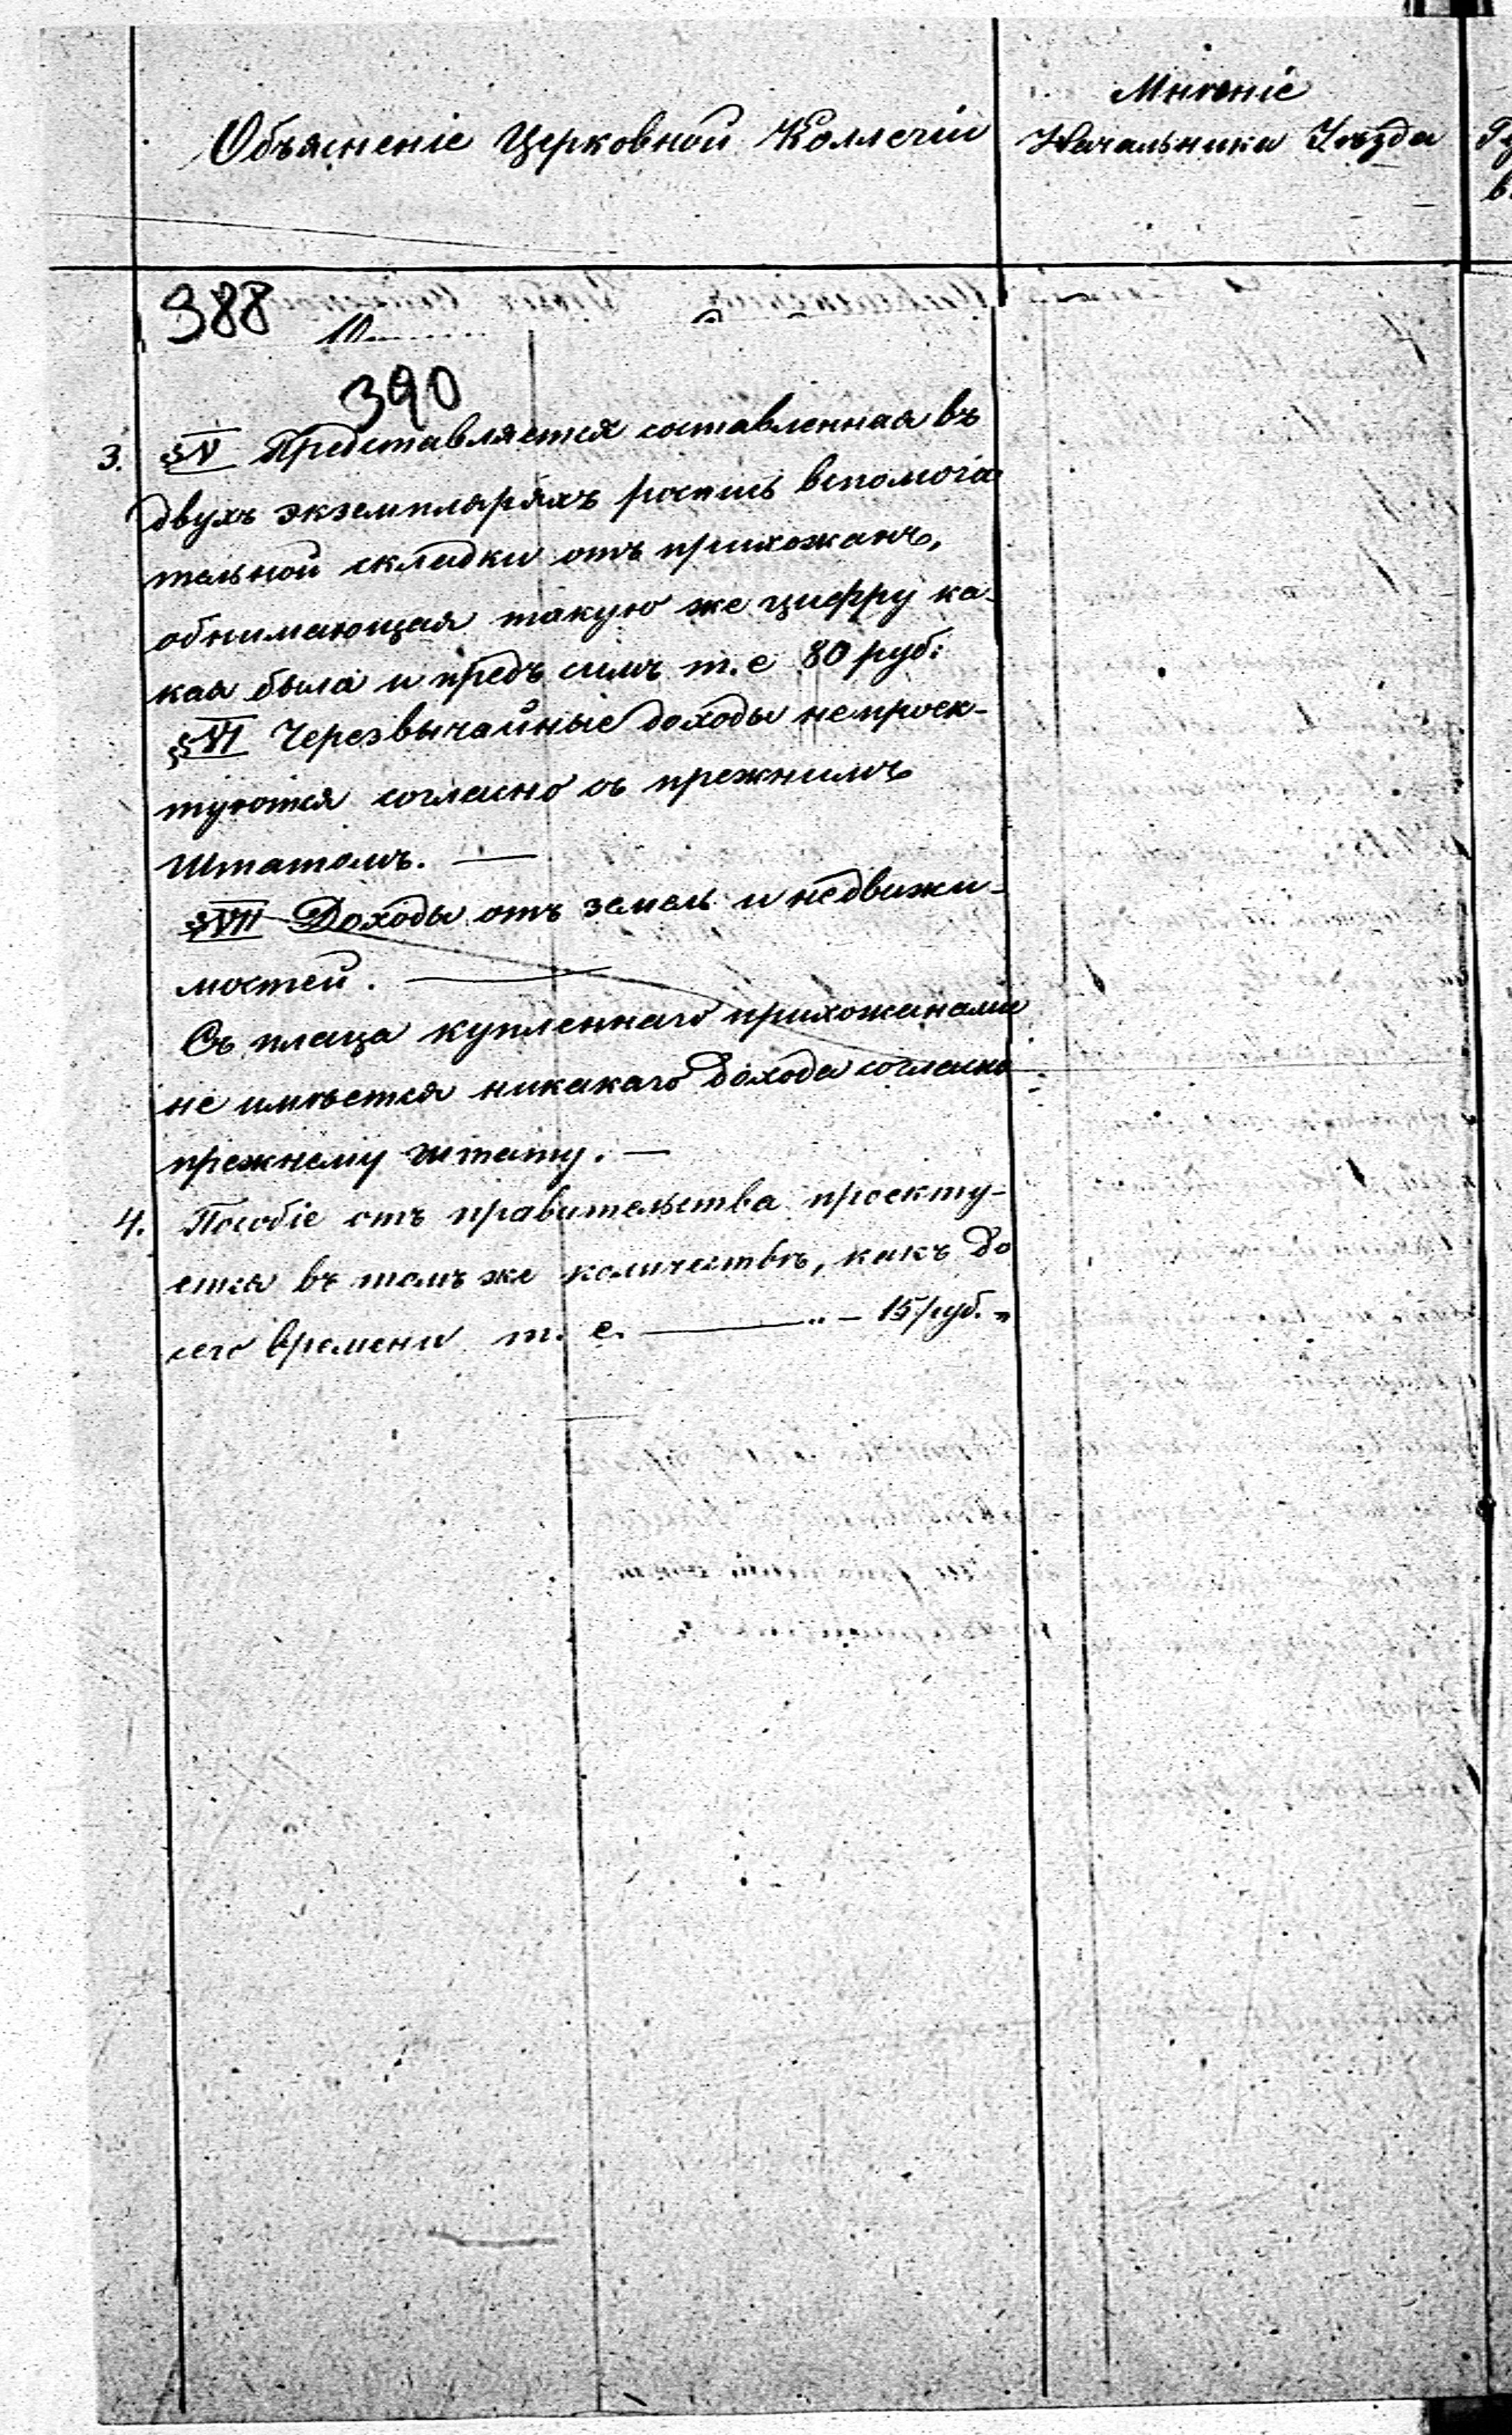 Объясненіе Церковной Коллегіи
Мнѣніе
Начальника Уѣзда
388
390
3. § V Представляется составленная въ
двухъ экземплярахъ роспись вспомога
тельной складки отъ прихожанъ,
обнимающая такую же цифру ка-
кая была и предъ симъ т. е 80 руб:
§ VI Черезвычайные доходы непроек-
туются согласно съ прежнимъ
Штатомъ. —
§ VII Доходы отъ земель и недвижи-
мостей. —
Съ плаца купленнаго прихожанами
не имѣется никакаго дохода согласно
прежнему штату. —
4. Пособіе отъ правительства проекту-
ется въ томъ же количествѣ, какъ до
сего времени т. е. — „ — 15 руб. „